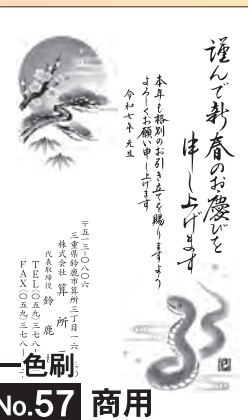 謹んで新春のお慶びを
申し上げます
本年も格別のお引き立てを賜りますよう
よろしくお願い申し上げます
令和七年 元旦
〒五一三-〇八〇六
三重県鈴鹿市算所三丁目一六
株式会社 算所
代表取締役 鈴鹿
TEL(〇五九)三七八
FAX(〇五九)三七八
一色刷
No.57 商用